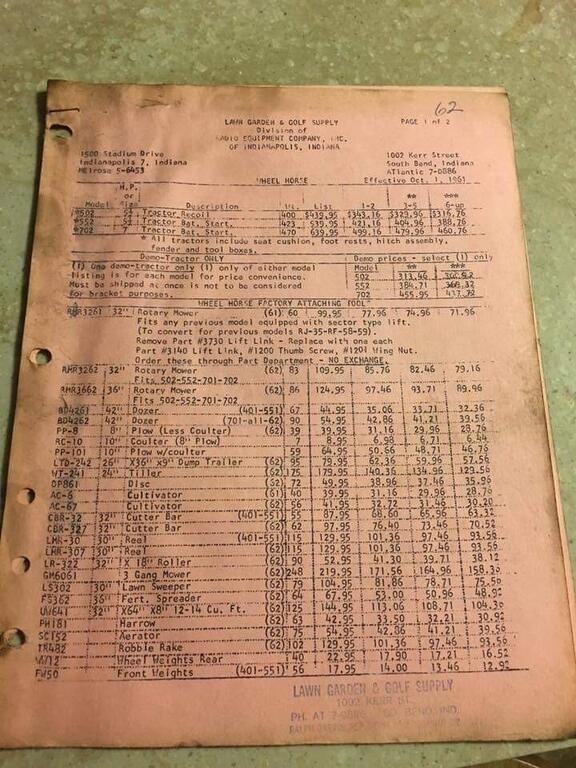 62
LAWN GARDEN & GOLF SUPPLY PAGE 1 of 2
Division of
RADIO EQUIPMENT COMPANY, INC.
OF INDIANAPOLIS, INDIANA
1500 Stadium Drive 1002 Kerr Street
Indianapolis 7, Indiana South Bend, Indiana
MElrose 5-6453 ATlantic 7-0886
WHEEL HORSE Effective Oct. 1, 1961
H.P.
or ** ***
Model Size Description Wt. List 1-2 3-5 6-up
*502 Tractor Recoil 400 $439.95 $343.16 $329.96 $316.76
*552 Tractor Bat. Start. 423 539.95 421.16 404.96 388.76
*702 7 Tractor Bat. Start. 470 639.95 499.16 479.96 460.76
* All tractors include seat cushion, foot rests, hitch assembly,
fender and tool boxes.
Demo-Tractor ONLY Demo prices - select (1) only
(1) One demo-tractor only (1) only of either model Model ** ***
listing is for each model for price convenience. 502 313.46
Must be shipped at once is not to be considered 552 384.71 368.32
for bracket purposes. 702 455.95 437.72
WHEEL HORSE FACTORY ATTACHING TOOL
RMR3261 32" Rotary Mower (61) 60 99.95 77.96 74.96 71.96
Fits any previous model equipped with sector type lift.
(To convert for previous models RJ-35-RF-58-59)
Remove Part #3730 Lift Link - Replace with one each
Part #3140 Lift Link, #1200 Thumb Screw, #1201 Wing Nut.
Order these through Part Department - NO EXCHANGE.
RMR3262 32" Rotary Mower (62) 83 109.95 85.76 82.46 79.16
Fits 502-552-701-702
RMR3662 36" Rotary Mower (62) 86 124.95 97.46 93.71 89.96
Fits 502-552-701-702
BD4261 42" Dozer (401-551) 67 44.95 35.06 33.71 32.36
BD4262 42" Dozer (701-all-62) 90 54.95 42.86 41.21 39.56
PP-8 8" Plow (Less Coulter) (62) 39 39.95 31.16 29.96 28.76
RC-10 10" Coulter (8" Plow) 7 8.95 6.98 6.71 6.44
PP-101 10" Plow w/coulter 59 64.95 50.66 48.71 46.76
LTD-242 26" X36" X9" Dump Trailer (62) 95 79.95 62.36 59.96 57.56
WT-241 24" Tiller (62) 175 179.95 140.36 134.96 129.56
DP861 Disc (62) 72 49.95 38.96 37.46 35.96
AC-6 Cultivator (61) 40 39.95 31.16 29.96 28.76
AC-67 Cultivator (62) 56 41.95 32.72 31.46 30.20
CBR-32 32" Cutter Bar (401-551) 55 87.95 68.60 65.96 63.32
CBR-327 32" Cutter Bar (62) 62 97.95 76.40 73.46 70.52
LMR-30 30" Reel (401-551) 115 129.95 101.36 97.46 93.56
LMR-307 30" Reel (62) 115 129.95 101.36 97.46 93.56
LR-322 32" X 18" Roller (62) 90 52.95 41.30 39.71 38.12
GM6061 3 Gang Mower (62) 248 219.95 171.56 164.96 158.36
LS302 30" Lawn Sweeper (62) 79 104.95 81.86 78.71 75.56
FS362 36" Fert. Spreader (62) 64 67.95 53.00 50.96 48.92
UW641 32" X64" X8" 12-14 Cu. Ft. (62) 125 144.95 113.06 108.71 104.36
PH181 Harrow (62) 63 42.95 33.50 32.21 30.92
SC152 Aerator (62) 75 54.95 42.86 41.21 39.56
TR482 Robble Rake (62) 102 129.95 101.36 97.46 93.56
WW12 Wheel Weights Rear 40 22.95 17.90 17.21 16.52
FW50 Front Weights (401-551) 56 17.95 14.00 13.46 12.92
LAWN GARDEN & GOLF SUPPLY
1002 KERR ST.
PH. AT 7-0886 SO. BEND, IND.